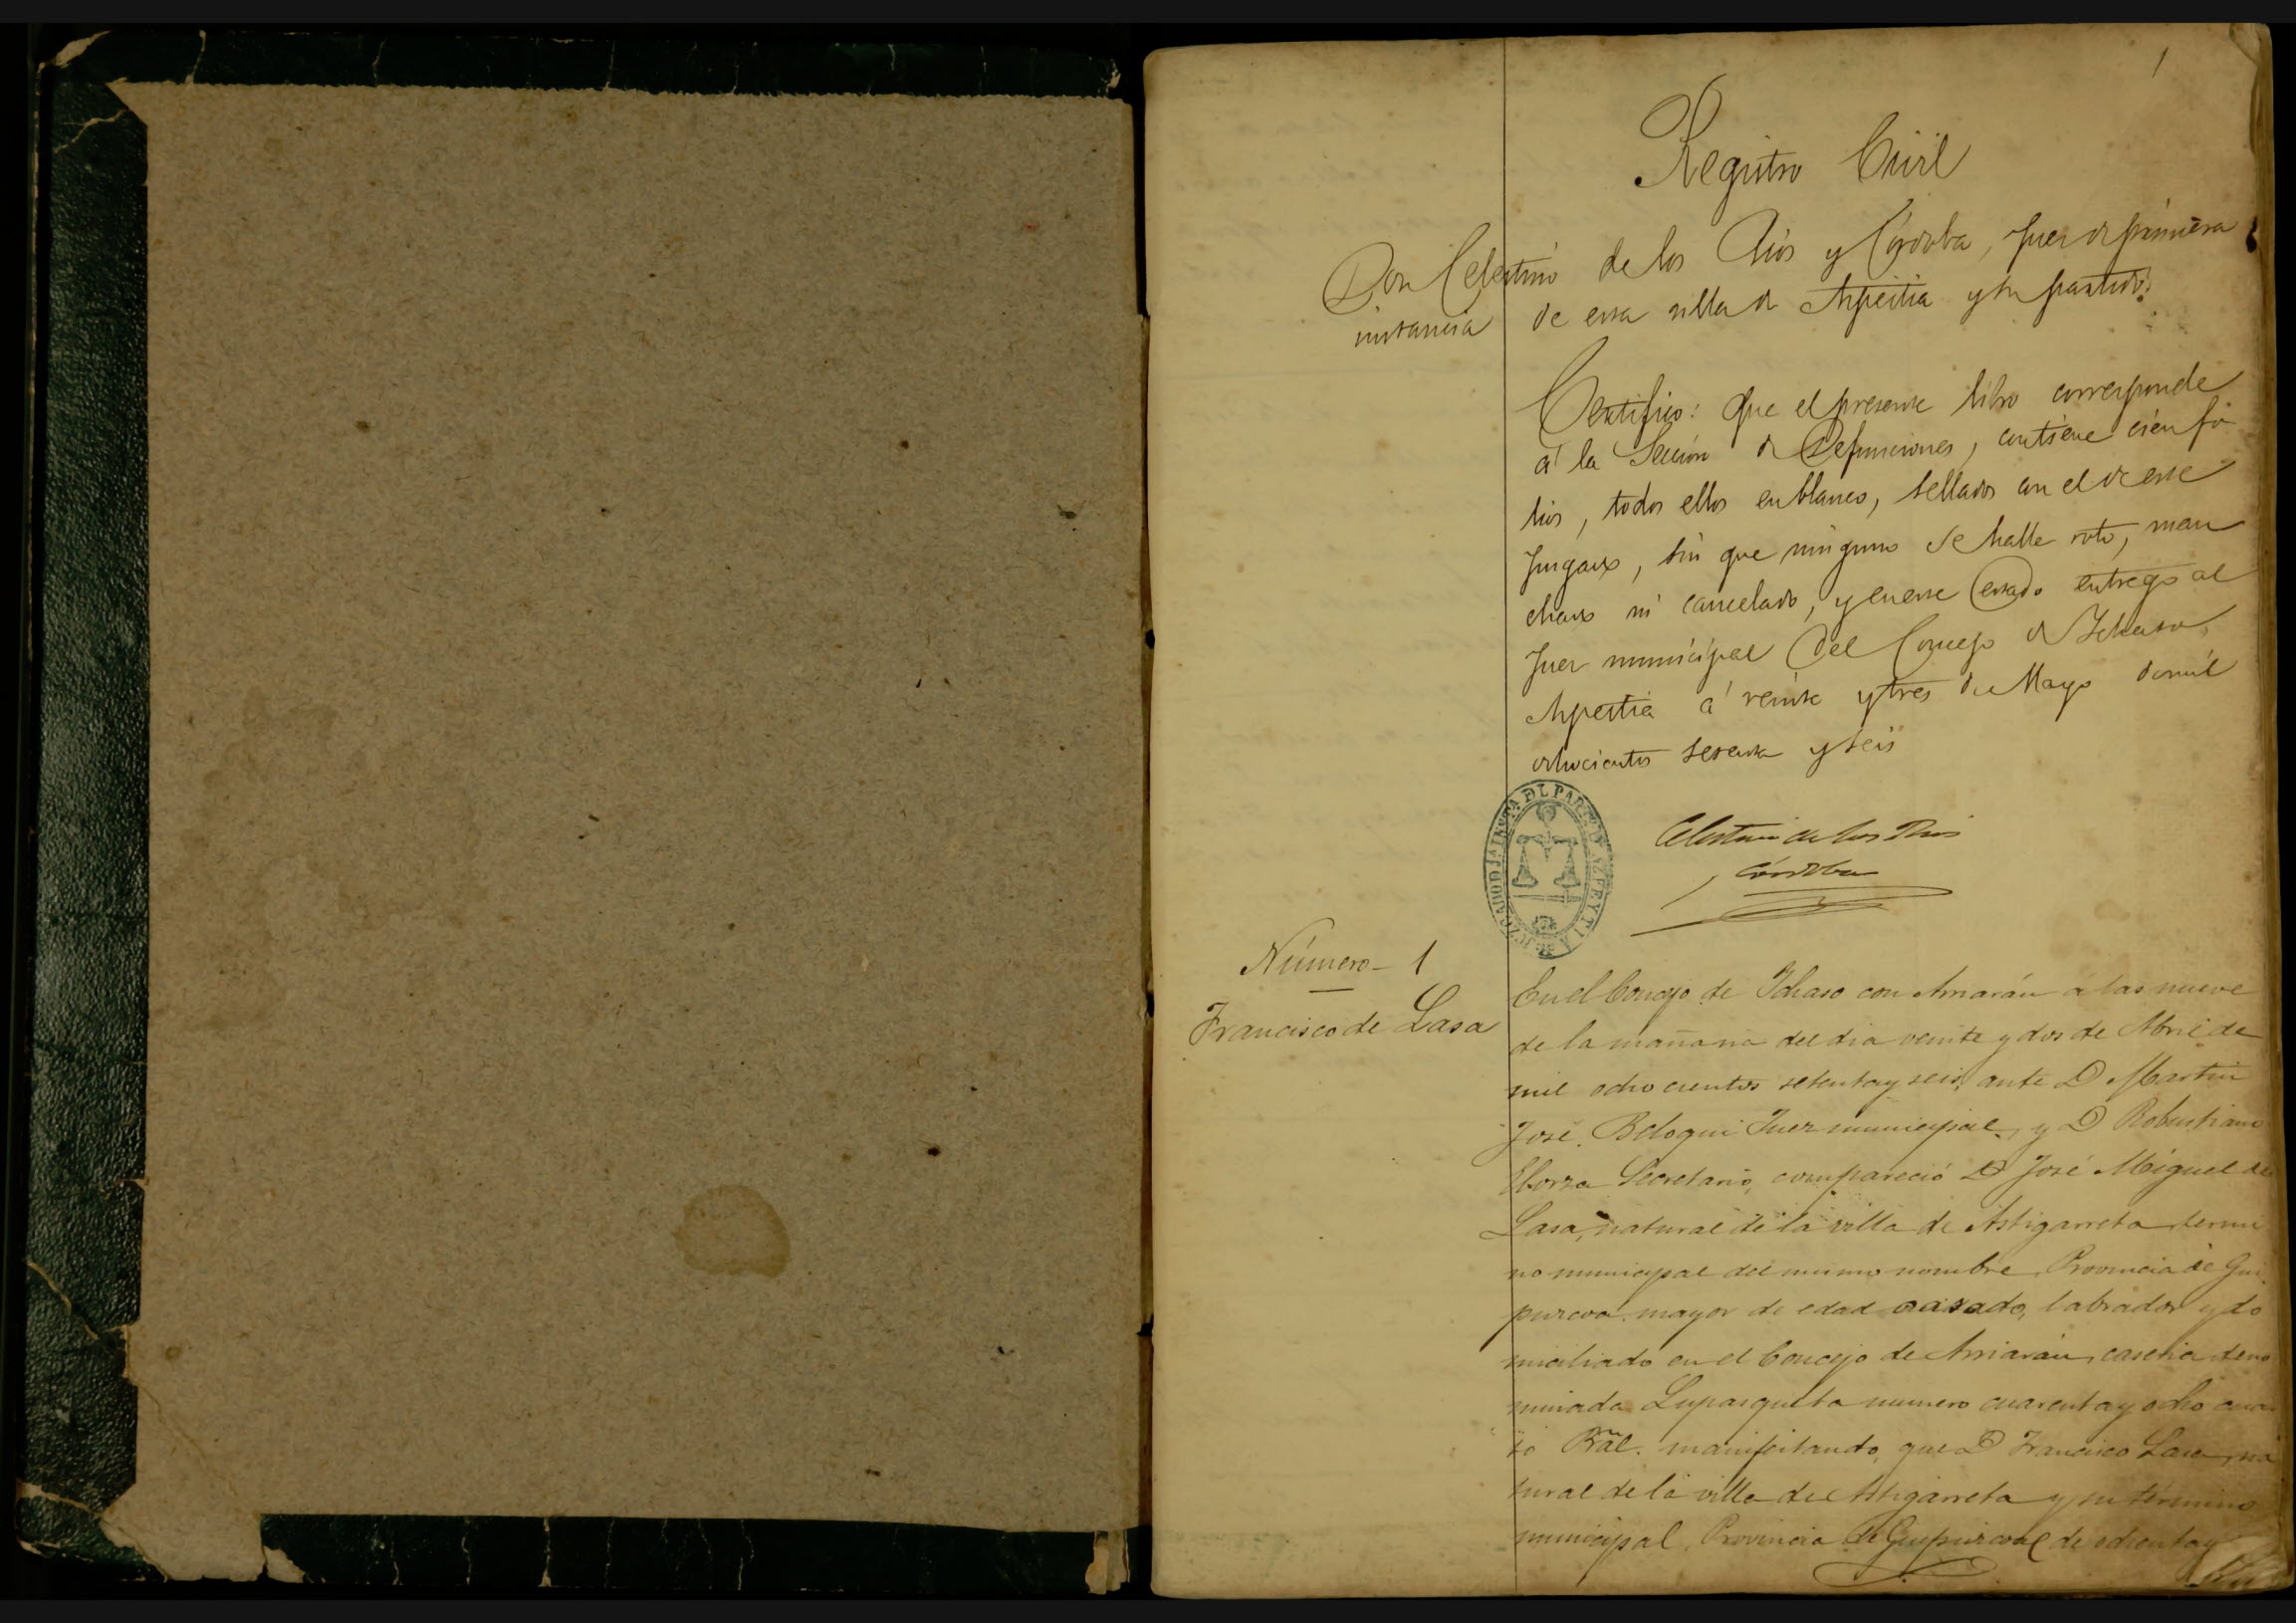 1
Registro Civil
Don Celestino de los Rios y Córdoba, Juez de primera
instancia de esta villa de Azpeitia y su partido:
Certifico: Que el presente libro corresponde
á la Sección de Defunciones, contiene cien fo
lios, todos ellos en blanco, sellados con el de este
Juzgado, sin que ninguno se halle roto, man
chado ni cancelado, y en este estado entrego al
Juez municipal del Concejo de Ichaso.
Azpeitia á veinte y tres de Mayo de mil
ochocientos setenta y seis
JUZGADO D 1ª INSTA DL PARTIDO AZPEYTIA
Celestino de los Rios
y Córdoba
Número - 1
Francisco de Lasa
En el Concejo de Ichaso con Arriarán á las nueve
de la mañana del dia veinte y dos de Abril de
mil ochocientos setenta y seis, ante D Martin
José Beloqui Juez municipal, y D Robustiano
Elorza Secretario, compareció D José Miguel de
Lasa, natural de la villa de Astigarreta, termi
no municipal del mismo nombre, Provincia de Gui
puzcoa, mayor de edad casado, labrador y do
miciliado en el Concejo de Arriarán, caseria deno
minada Lupasqueta numero cuarenta y ocho cuar
to Pral. manifestando, que D Francisco Lasa, na
tural de la villa de Astigarreta y su término
municipal, Provincia de Guipuzcoa, de ochenta y